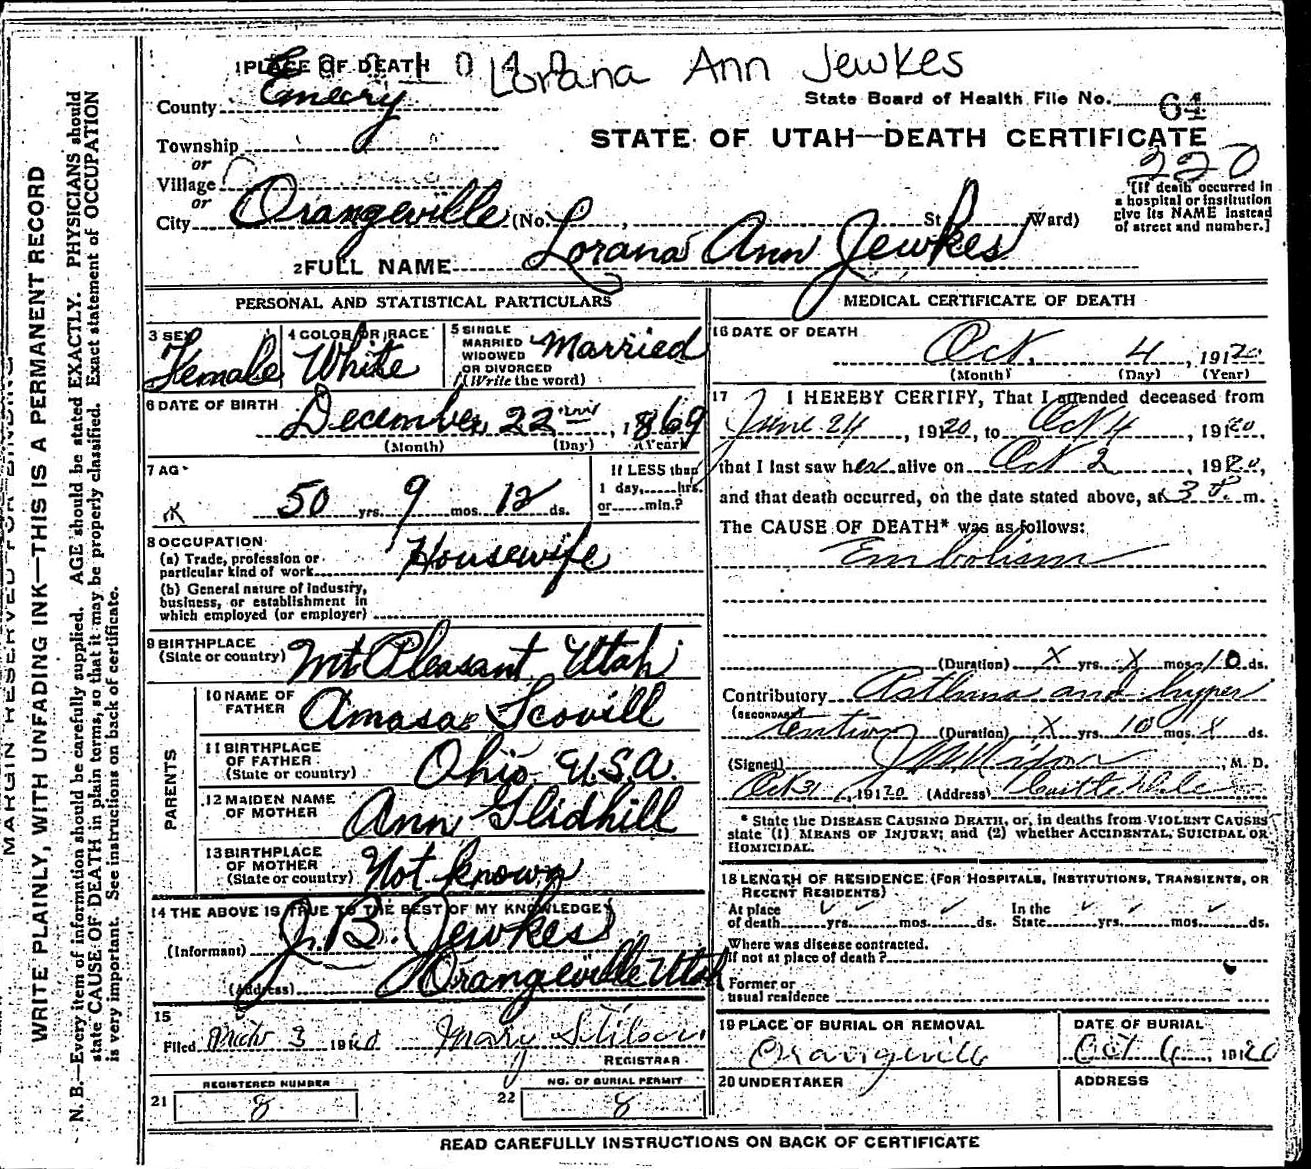 1 PLACE OF DEATH Lorana Ann Jewkes
County Emery
State Board of Health File No. 64
Township
STATE OF UTAH—DEATH CERTIFICATE
or
Village
220
or
City Orangeville (No. , St. Ward)
[If death occurred in
a hospital or institution
give its NAME instead
of street and number.]
2 FULL NAME Lorana Ann Jewkes
MARGIN RESERVED FOR BINDING
WRITE PLAINLY, WITH UNFADING INK—THIS IS A PERMANENT RECORD
N. B.—Every item of information should be carefully supplied. AGE should be stated EXACTLY. PHYSICIANS should
state CAUSE OF DEATH in plain terms, so that it may be properly classified. Exact statement of OCCUPATION
is very important. See instructions on back of certificate.
PERSONAL AND STATISTICAL PARTICULARS
3 SEX
Female
4 COLOR OR RACE
White
5 SINGLE
MARRIED
WIDOWED
OR DIVORCED
(Write the word)
Married
6 DATE OF BIRTH
December 22nd, 1869
(Month) (Day) (Year)
7 AGE
50 yrs. 9 mos. 12 ds.
If LESS than
1 day,.....hrs.
or.....min.?
8 OCCUPATION
(a) Trade, profession or
particular kind of work Housewife
(b) General nature of industry,
business, or establishment in
which employed (or employer)
9 BIRTHPLACE
(State or country) Mt Pleasant Utah
PARENTS
10 NAME OF
FATHER Amasa Scovill
11 BIRTHPLACE
OF FATHER
(State or country) Ohio U.S.A.
12 MAIDEN NAME
OF MOTHER Ann Glidhill
13 BIRTHPLACE
OF MOTHER
(State or country) Not known
14 THE ABOVE IS TRUE TO THE BEST OF MY KNOWLEDGE
(Informant) J. B. Jewkes
(Address) Orangeville Utah
15
Filed 3 19 Mary Stilson
REGISTRAR
REGISTERED NUMBER
21 8
NO. OF BURIAL PERMIT
22 8
MEDICAL CERTIFICATE OF DEATH
16 DATE OF DEATH
Oct. 4, 1920
(Month) (Day) (Year)
17 I HEREBY CERTIFY, That I attended deceased from
June 24, 1920, to Oct 4, 1920,
that I last saw her alive on Oct 2, 1920,
and that death occurred, on the date stated above, at 3 P. m.
The CAUSE OF DEATH* was as follows:
Embolism
(Duration) X yrs. X mos. 10 ds.
Contributory Asthma and hyper
(SECONDARY)
tention (Duration) X yrs. 10 mos. X ds.
(Signed) , M. D.
Oct 31, 1920 (Address) Castle Dale
* State the DISEASE CAUSING DEATH, or, in deaths from VIOLENT CAUSES
state (1) MEANS OF INJURY; and (2) whether ACCIDENTAL, SUICIDAL OR
HOMICIDAL.
18 LENGTH OF RESIDENCE (FOR HOSPITALS, INSTITUTIONS, TRANSIENTS, OR
RECENT RESIDENTS)
At place
of death.....yrs.....mos.....ds.
In the
State.....yrs.....mos.....ds.
Where was disease contracted.
If not at place of death?
Former or
usual residence
19 PLACE OF BURIAL OR REMOVAL
Orangeville
DATE OF BURIAL
Oct 6, 1920
20 UNDERTAKER
ADDRESS
READ CAREFULLY INSTRUCTIONS ON BACK OF CERTIFICATE